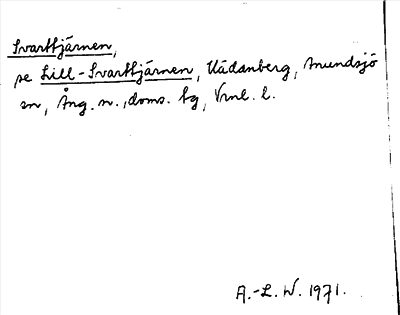 Svarttjärnen,
se Lill-Svarttjärnen, Kådanberg, Anundsjö
sn, Ång. n., doms. bg, Vrnl. l.
A.-L. W. 1971.